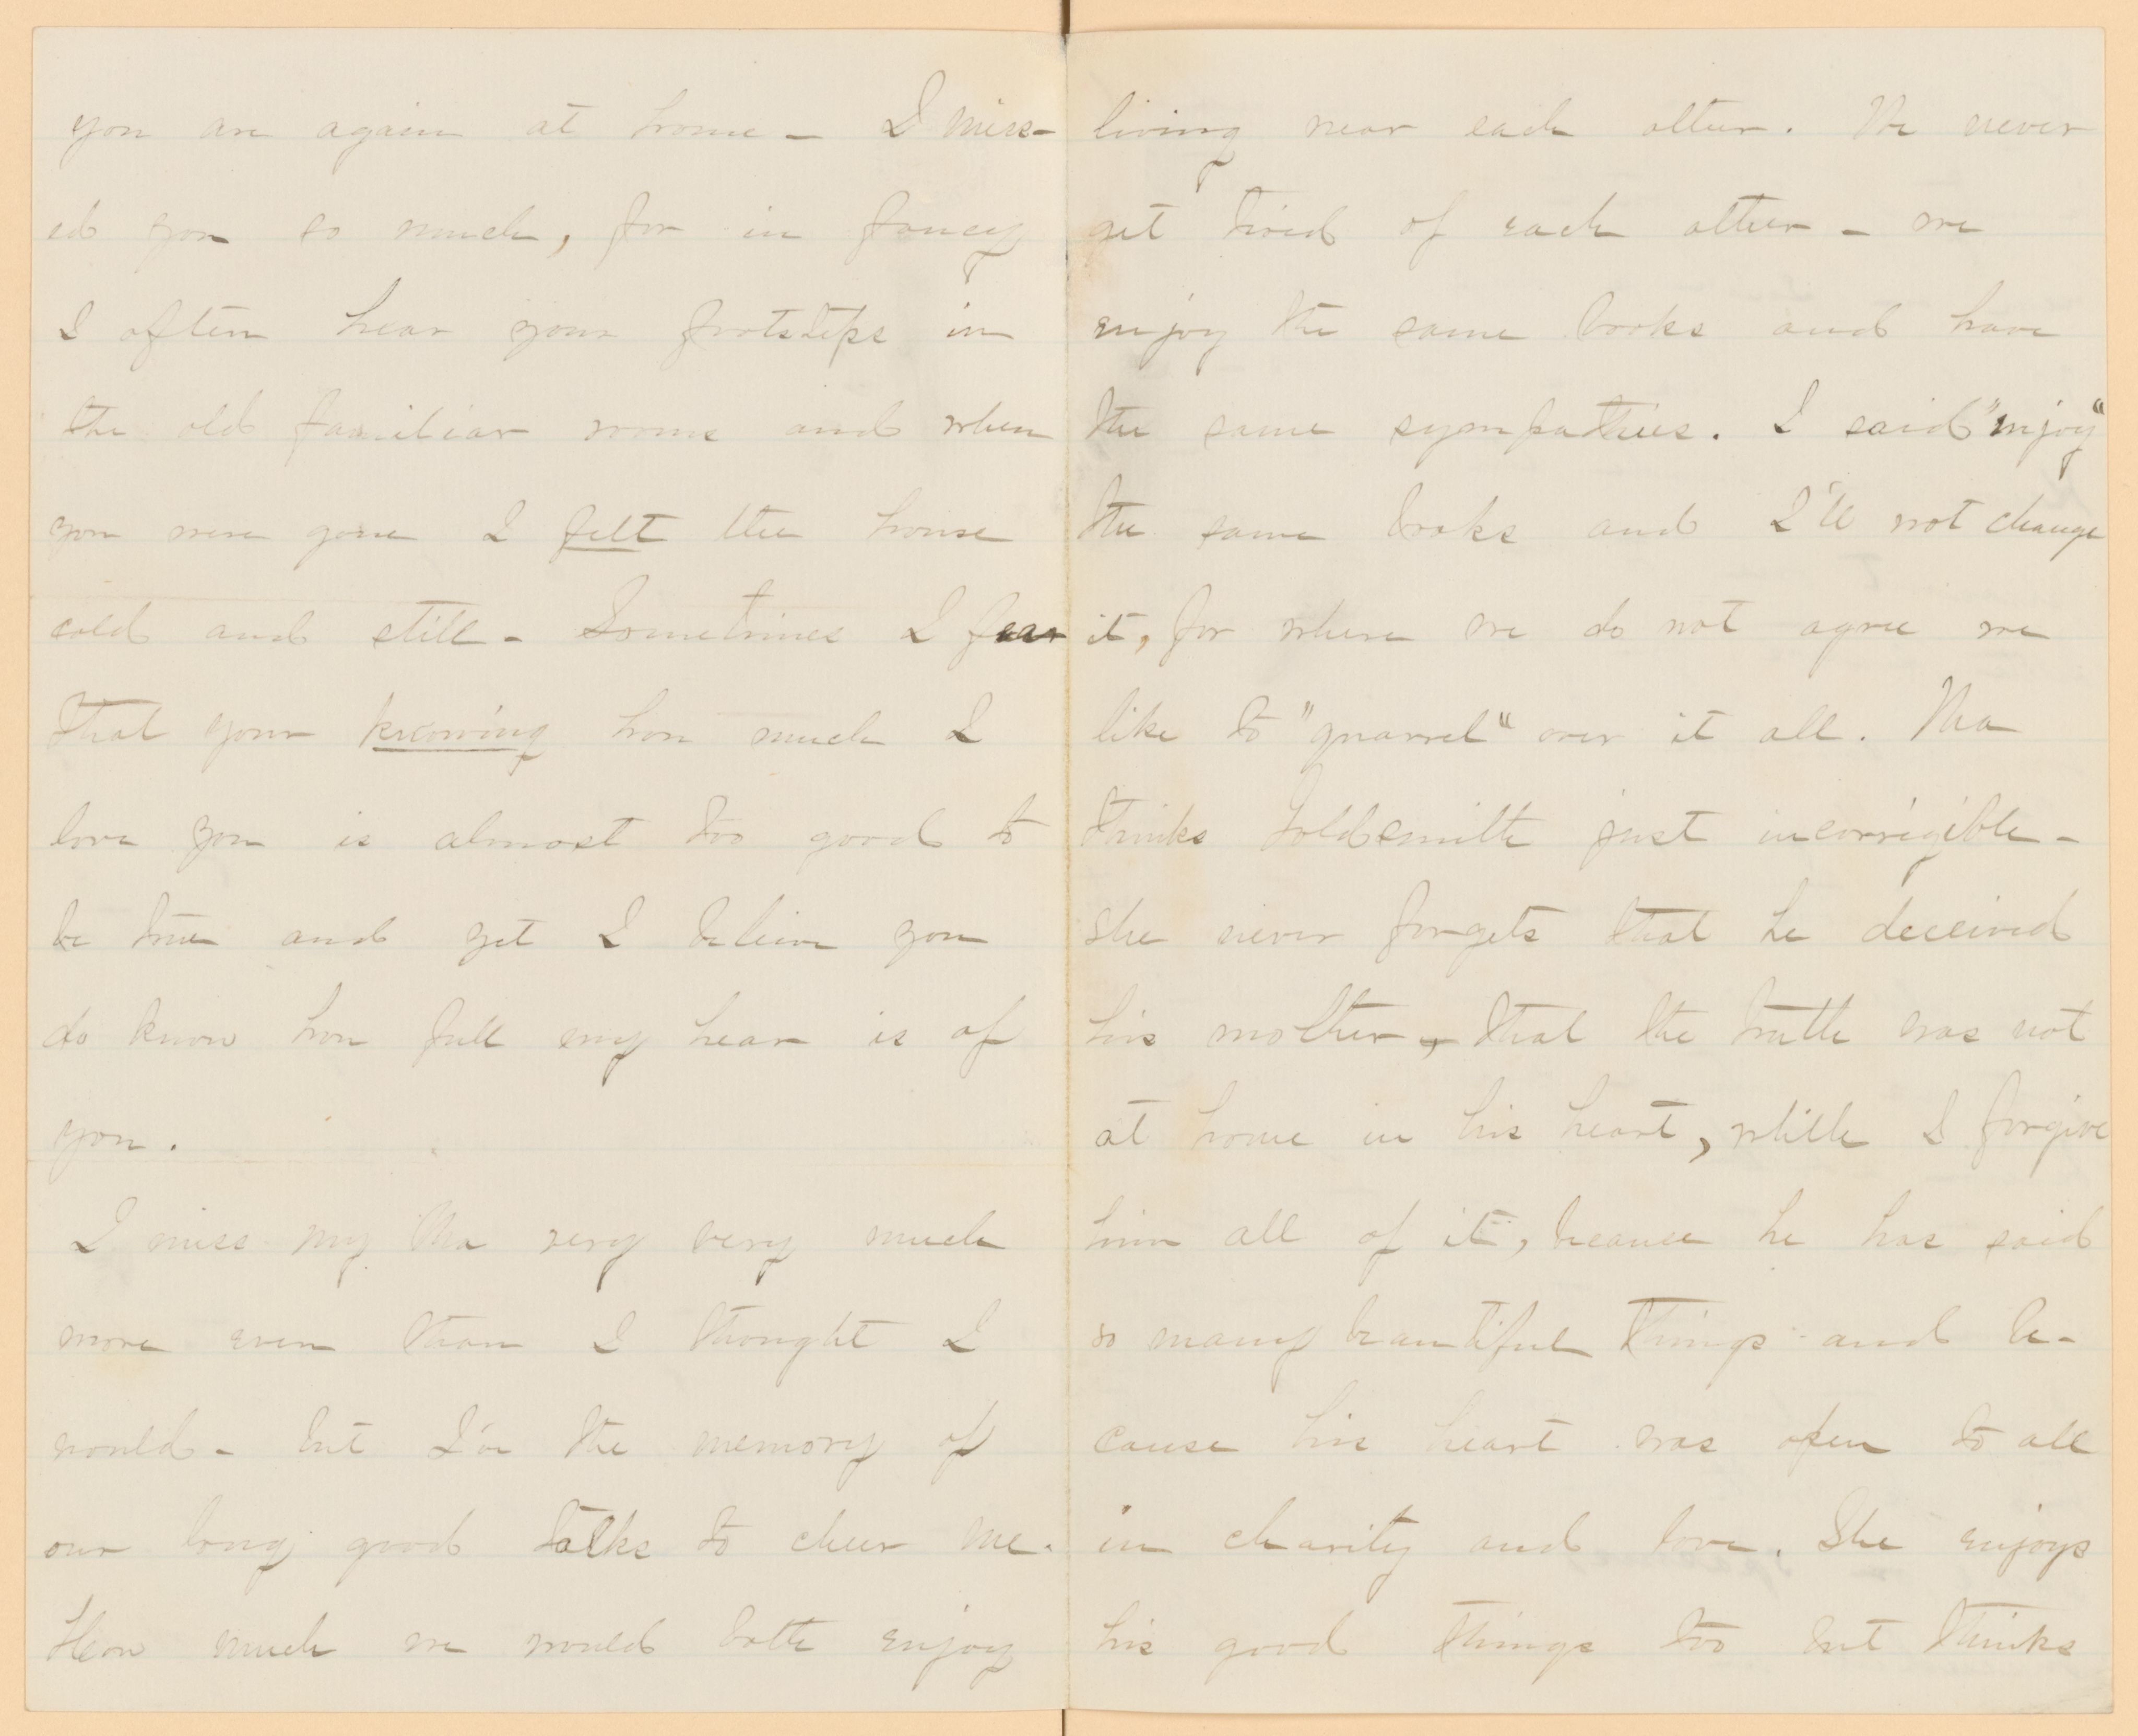 you are again at home - I miss-
ed you so much, for in fancy
I often hear your footsteps in
the old familiar rooms and when
you were gone I felt the house
cold and still - Sometimes I fear
that your knowing how much I
love you is almost too good to
be true and yet I believe you
do know how full my hear is of
you.
I miss my Ma very very much
more even than I thought I
would - but I've the memory of
our long good talks to cheer me.
How much we would both enjoy
living near each other. We never
get tired of each other - we
enjoy the same books and have
the same sympathies. I said "enjoy"
the same books and I'll not change
it, for where we do not agree we
like to "quarrel" over it all. Ma
thinks Goldsmith just incorrigible -
she never forgets that he deceived
his mother, that the truth was not
at home in his heart, while I forgive
him all of it, because he has said
so many beautiful things and be-
cause his heart was open to all
in charity and love. She enjoys
his good things too but thinks